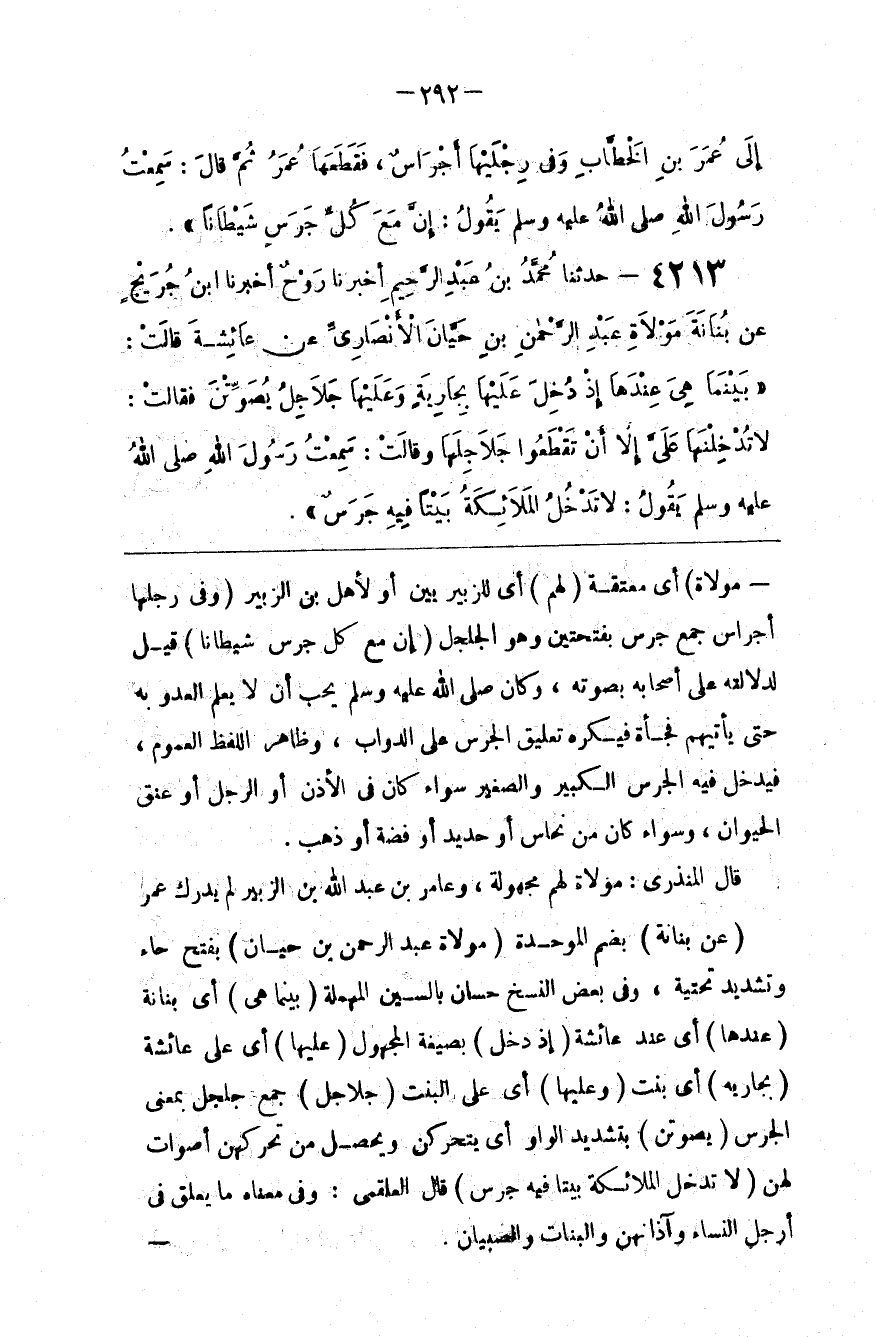 — ٢٩٢ —
إلَى عُمَرَ بنِ الْخَطَّابِ وَفى رِجْلَيْهَا أَجْرَاسٌ ، فَقَطَعَهَا عُمَرُ ثُمَّ قالَ : سَمِعْتُ
رَسُولَ اللهِ صلى اللهُ عليه وسلم يَقُولُ : إنَّ مَعَ كُلِّ جَرَسٍ شَيْطَانًا » .
٤٢١٣ — حدثنا مُحمَّدُ بنُ عَبْدِ الرَّحِيمِ أخبرنا رَوْحٌ أخبرنا ابنُ جُرَيْجٍ
عن بُنَانَةَ مَوْلاَةِ عَبْدِ الرَّحْمٰنِ بنِ حَيَّانَ الْأَنْصَارِىِّ عن عَائِشَةَ قالَتْ :
« بَيْنَمَا هِىَ عِنْدَهَا إذْ دُخِلَ عَلَيْهَا بِجَارِيَةٍ وَعَلَيْهَا جَلاَجِلُ يُصَوِّتْنَ فقالتْ :
لاتُدْخِلْنَهَا عَلَىَّ إلَّا أَنْ تَقْطَعُوا جَلاَجِلَهَا وقالَتْ : سَمِعْتُ رَسُولَ اللهِ صلى اللهُ
عليه وسلم يَقُولُ : لاتَدْخُلُ المَلاَئِكَةُ بَيْتًا فِيهِ جَرَسٌ » .
— مولاة) أى معتقة ( لهم ) أى للزبير بين أو لأهل بن الزبير ( وفى رجلها
أجراس جمع جرس بفتحتين وهو الجلجل ( إن مع كل جرس شيطانا ) قيل
لدلالته على أصحابه بصوته ، وكان صلى الله عليه وسلم يحب أن لا يعلم العدو به
حتى يأتيهم فجأة فيكره تعليق الجرس على الدواب ، وظاهر اللفظ العموم ،
فيدخل فيه الجرس الكبير والصغير سواء كان فى الأذن أو الرجل أو عنق
الحيوان ، وسواء كان من نحاس أو حديد أو فضة أو ذهب .
قال المنذرى : مولاة لهم مجهولة ، وعامر بن عبد الله بن الزبير لم يدرك عمر
( عن بنانة ) بضم الموحدة ( مولاة عبد الرحمن بن حيان ) بفتح حاء
وتشديد تحتية ، وفى بعض النسخ حسان بالسين المهملة ( بينما هى ) أى بنانة
( عندها ) أى عند عائشة ( إذ دخل ) بصيغة المجهول ( عليها ) أى على عائشة
( بجاريه ) أى بنت ( وعليها ) أى على البنت ( جلاجل ) جمع جلجل بمعنى
الجرس ( يصوتن ) بتشديد الواو أى يتحركن ويحصل من تحركهن أصوات
لهن ( لا تدخل الملائكة بيتا فيه جرس ) قال العلقمى : وفى معناه ما يعلق فى
أرجل النساء وآذانهن والبنات والصبيان . —